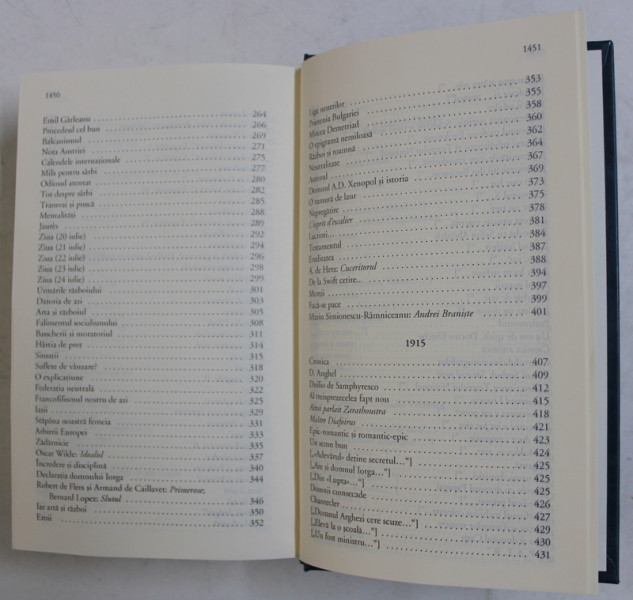 1450
Emil Gârleanu 264
Procedeul cel bun 266
Balcanismul 269
Nota Austriei 271
Calendele internaționale 275
Milă pentru sârbi 277
Odiosul atentat 280
Tot despre sârbi 282
Tramvai și pușcă 285
Mentalități 288
Jaurès 289
Ziua (20 iulie) 292
Ziua (21 iulie) 294
Ziua (22 iulie) 296
Ziua (23 iulie) 298
Ziua (24 iulie) 299
Urmările războiului 301
Datoria de azi 303
Arta și războiul 305
Falimentul socialismului 308
Bancherii și moratoriul 311
Hârtia de preț 313
Situații 315
Suflete de vânzare? 318
O explicațiune 320
Federația neutrală 322
Francofilismul nostru de azi 325
Iașii 329
Stăpâna noastră femeia 331
Arbitrii Europei 333
Zădărnicie 335
Oscar Wilde: Idealul 337
Încredere și disciplină 340
Declarația domnului Iorga 344
Robert de Flers și Armand de Caillavet: Primerose;
Bernard Lopez: Slutul 346
Iar artă și război 350
Emii 352
1451
Liga neutrilor 353
Prietenia Bulgariei 355
Mircea Demetriad 358
O epigramă nemiloasă 360
Război și toamnă 362
Neutralitate 364
Autorul 367
Domnul A.D. Xenopol și istoria 369
O ramură de laur 373
Nepregătire 375
L'esprit d'escalier 378
Lucreții... 381
Testamentul 384
Evaluatea 387
A. de Herz: Cuceritorul 388
De la Swift cetire... 394
Morții 397
Facă-se pace 399
Marin Simionescu-Râmniceanu: Andrei Braniște 401
1915
Cronica 407
D. Anghel 409
Duiliu de Samphyresco 412
Al treisprezecelea fapt nou 415
Ainsi parlait Zarathoustra 418
Maître Diafoirus 421
Epic-romantic și romantic-epic 423
Un semn bun 424
[„«Adevărul» deține secretul...”] 425
[„Are și domnul Iorga...”] 425
[„Din «Lupta»...”] 425
Domnii camerade 425
Chantecler 426
[„Domnul Arghezi cere scuze...”] 427
[„Elevă la o școală...”] 429
[„Un fost ministru...”] 430
431